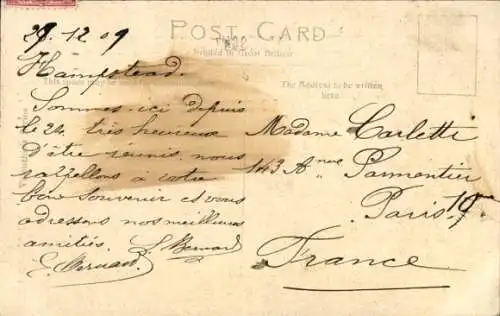 POST CARD
Printed in Great Britain
The Address to be written
here.
29.12.09
Hampstead.
Sommes ici depuis
le 24 très heureux
d'être réunis, nous
rappellons à votre
bon souvenir et vous
adressons nos meilleures
amitiés. S. Bernard
E. Bernard
Madame Carletti
143 Anue Parmentier
Paris
France